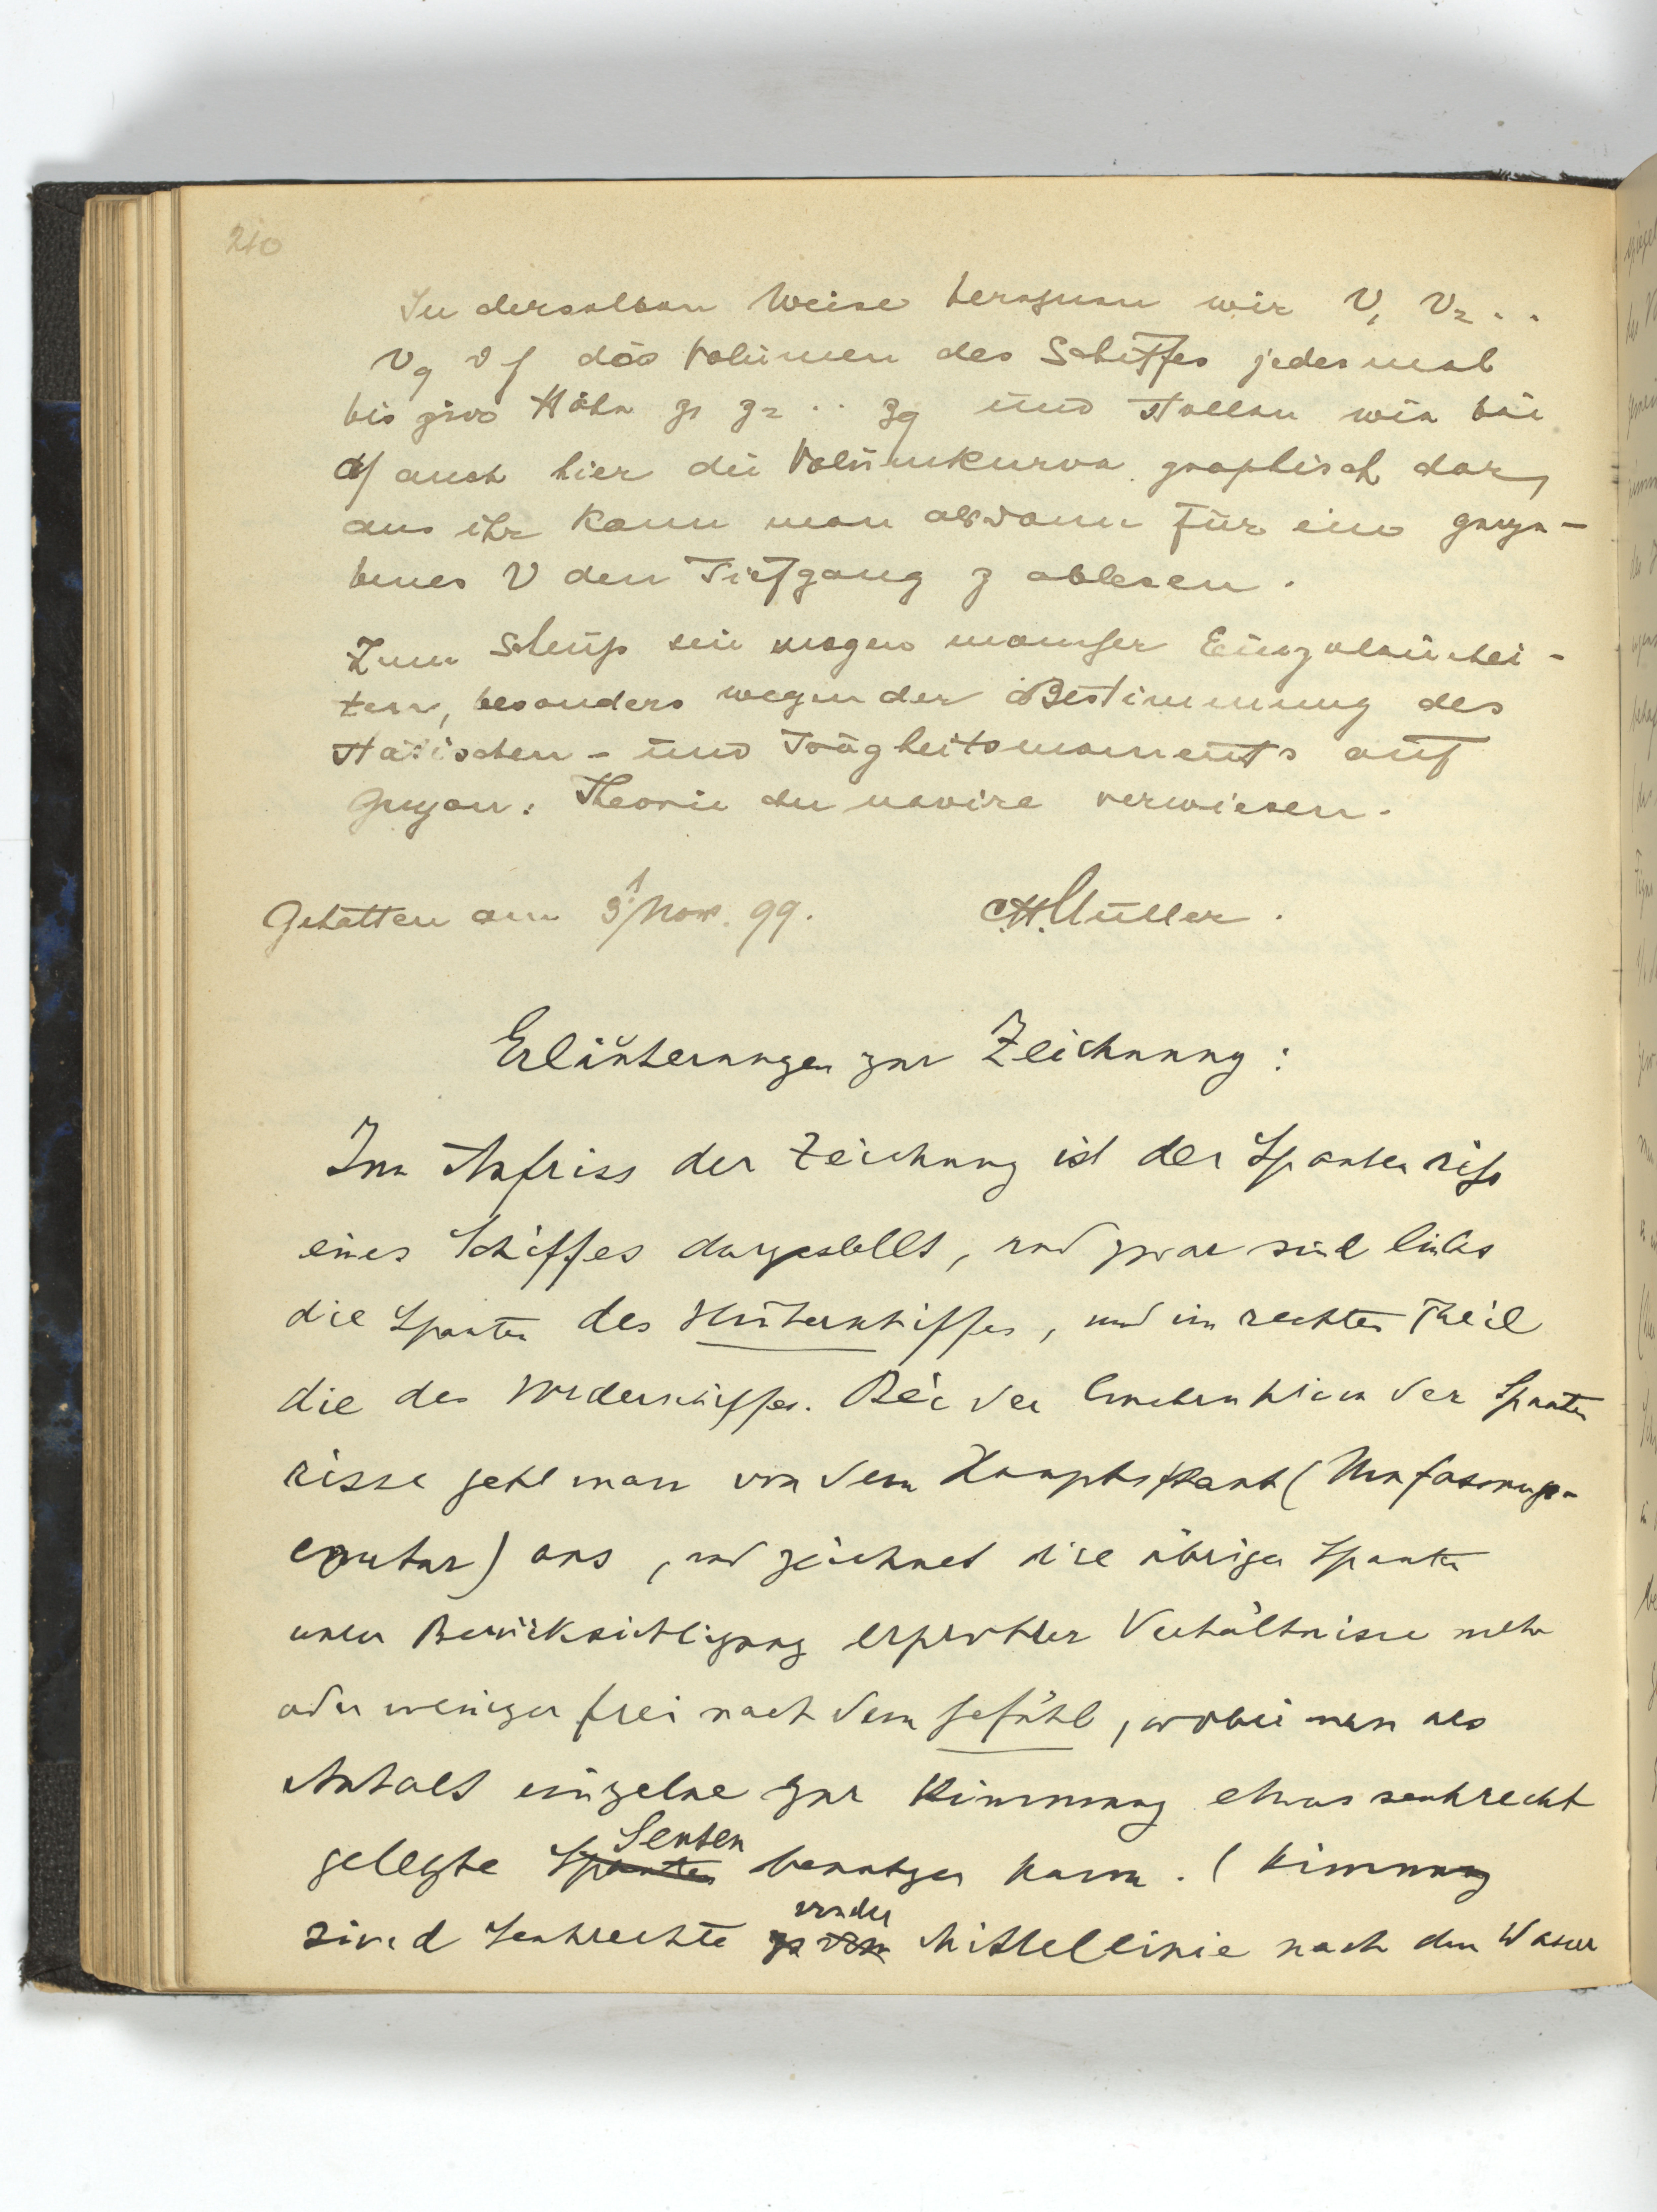 210
In derselben Weise berechnen wir V₁ V₂ . .
V₉ V f das Volumen des Schiffes jedesmal
bis zur Höhe z₁ z₂ . . z₉ und stellen wie bei
a) auch hier die Volumkurve graphisch dar,
aus ihr kann man alsdann für ein gege-
benes V den Tiefgang z ablesen.
Zum Schluß sei wegen mancher Einzelnhei-
ten, besonders wegen der Bestimmung des
statischen- und Trägheitsmoments auf
Guyou: Theorie du navire verwiesen.
Gehalten am Nov. 99. C.H. Müller.
Erläuterungen zur Zeichnung:
Im Aufriss der Zeichnung ist der Spantenriß
eines Schiffes dargestellt, und zwar sind links
die Spanten des Hinterschiffes, und im rechten Theil
die des Vorderschiffes. Bei der Construktion der Spanten
risse geht man von dem Hauptspant (Umfassungs-
contur) aus, und zeichnet die übrigen Spanten
unter Berücksichtigung erprobter Verhältnisse mehr
oder weniger frei nach dem Gefühl, wobei man als
Anhalt einzelne zur Kimmung etwas senkrecht
gelegte Spanten Senten benutzen kann. (Kimmung
sind Senkrechte von der Mittellinie nach dem Wasser